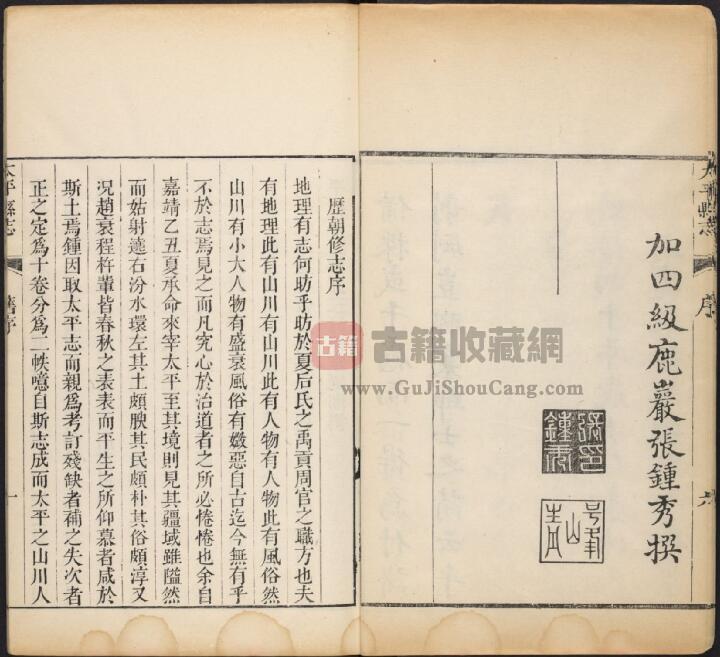 加四級鹿巖張鍾秀撰
太平縣志
序
六
歷朝修志序
地理有志何昉乎昉於夏后氏之禹貢周官之職方也夫
有地理此有山川有山川此有人物有人物此有風俗然
山川有小大人物有盛衰風俗有媺惡自古迄今無有乎
不於志焉見之而凡究心於治道者之所必惓惓也余自
嘉靖乙丑夏承命來宰太平至其境則見其疆域雖隘然
而姑射遶右汾水環左其土頗腴其民頗朴其俗頗淳又
況趙衰程杵輩皆春秋之表表而平生之所仰慕者咸於
斯土焉鍾因取太平志而親為考訂殘缺者補之失次者
正之定為十卷分為二帙噫自斯志成而太平之山川人
太平縣志
舊序
一
古籍
古籍收藏網
www.GuJiShouCang.com